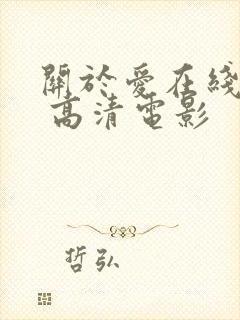 關於愛在綫
高清電影
哲弘